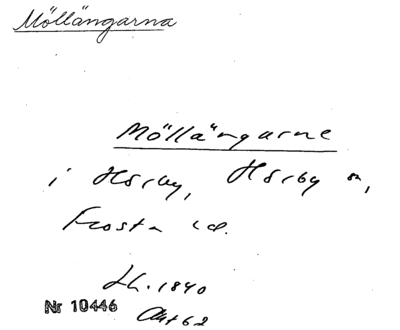 Möllängarna
Möllängarne
i Hörby, Hörby sn,
Frosta
Lh. 1840
Nr 10446
Akt 62